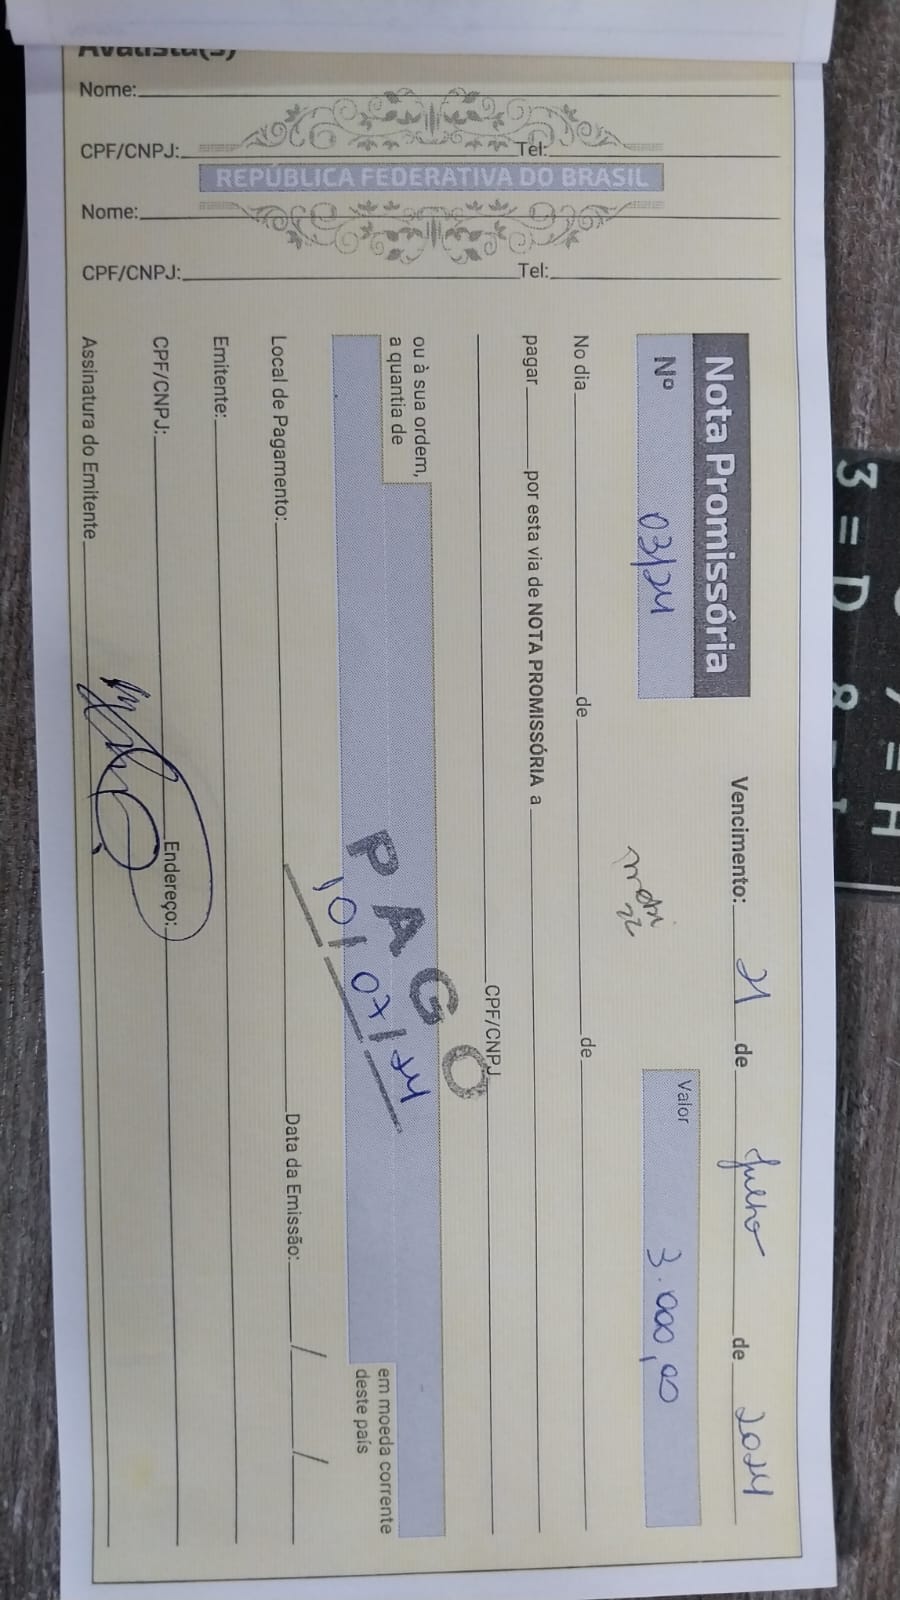 Avalista(s)
Nome:
CPF/CNPJ: Tel:
REPÚBLICA FEDERATIVA DO BRASIL
Nome:
CPF/CNPJ: Tel:
Nota Promissória
Vencimento: 21 de Julho de 2024
Nº 03/24
Valor 3.000,00
No dia de de
pagar por esta via de NOTA PROMISSÓRIA a
CPF/CNPJ
ou à sua ordem,
a quantia de
em moeda corrente
deste país
PAGO
10/07/24
Local de Pagamento: Data da Emissão: / /
Emitente:
CPF/CNPJ: Endereço:
Assinatura do Emitente
3 = D 8 =